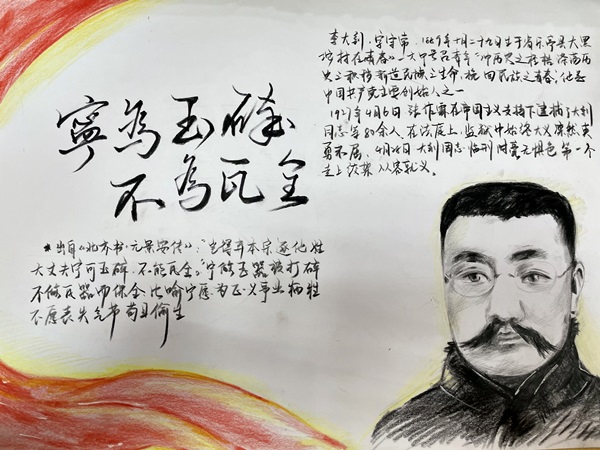 李大钊,字守常,1889年十月二十九生于省乐亭县大黑
坨村在《青春》一文中号召青年"冲决历史之桎梏涤荡历
史之积秽新造民族之生命,挽回民族之青春,他是
中国共产党主要创始人之一
1927年4月6日 张作霖在帝国主义支持下逮捕了大钊
同志等80余人,在法庭上,监狱中始终大义凛然
勇不屈、4月28日大钊同志临刑时毫无惧色第一个
走上绞架 从容就义。
寧為玉碎
不為瓦全
★出自《北齐书·元景安传》:"岂得弃本宗逐他姓
大丈夫宁可玉碎,不能瓦全。"宁做玉器被打碎
不做瓦器而保全 比喻宁愿为正义事业牺牲
不愿丧失气节苟且偷生